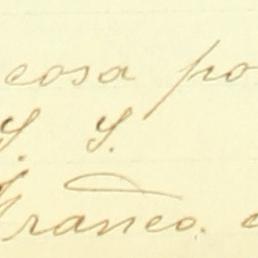 cosa po
S. S.
Franco.